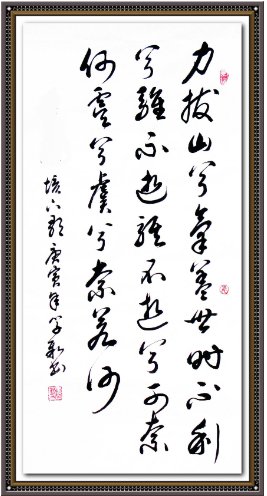 力拔山兮氣蓋世时不利
兮騅不逝騅不逝兮可奈
何虞兮虞兮奈若何
垓下歌庚寅年